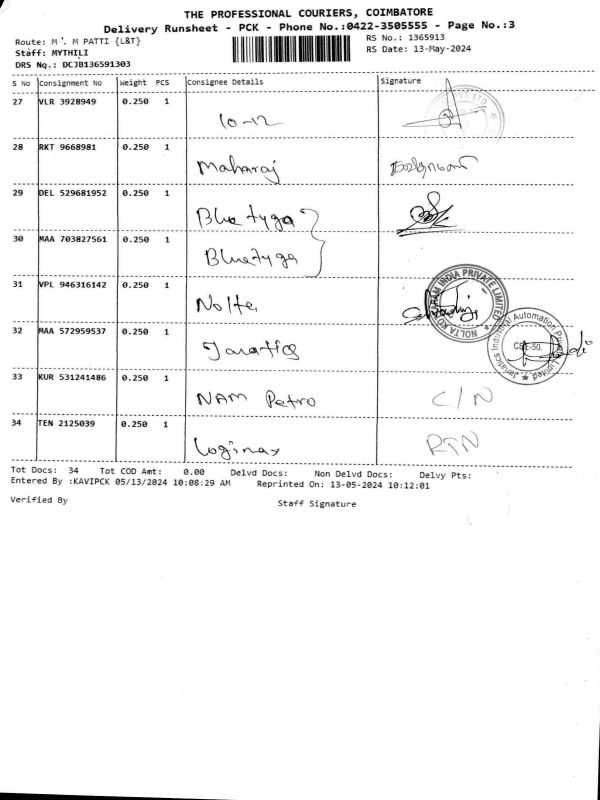 THE PROFESSIONAL COURIERS, COIMBATORE
Delivery Runsheet - PCK - Phone No.:0422-3505555 - Page No.:3
Route: M . M PATTI {L&T}
RS No.: 1365913
Staff: MYTHILI
RS Date: 13-May-2024
DRS No.: DCJB136591303
S No Consignment No Weight PCS Consignee Details Signature
27 VLR 3928949 0.250 1
10-12
28 RKT 9668981 0.250 1
Maharaj
29 DEL 529681952 0.250 1
Bluetyga
30 MAA 703827561 0.250 1
Bluetyga
31 VPL 946316142 0.250 1
Nolta
NOLTA INDIA PRIVATE LIMITED
32 MAA 572959537 0.250 1
Janatics
Janatics Industrial Automation Private Limited
CBE-50.
33 KUR 531241486 0.250 1
NAM Petro C/N
34 TEN 2125039 0.250 1
Loginax RTN
Tot Docs: 34 Tot COD Amt: 0.00 Delvd Docs: Non Delvd Docs: Delvy Pts:
Entered By :KAVIPCK 05/13/2024 10:08:29 AM Reprinted On: 13-05-2024 10:12:01
Verified By Staff Signature